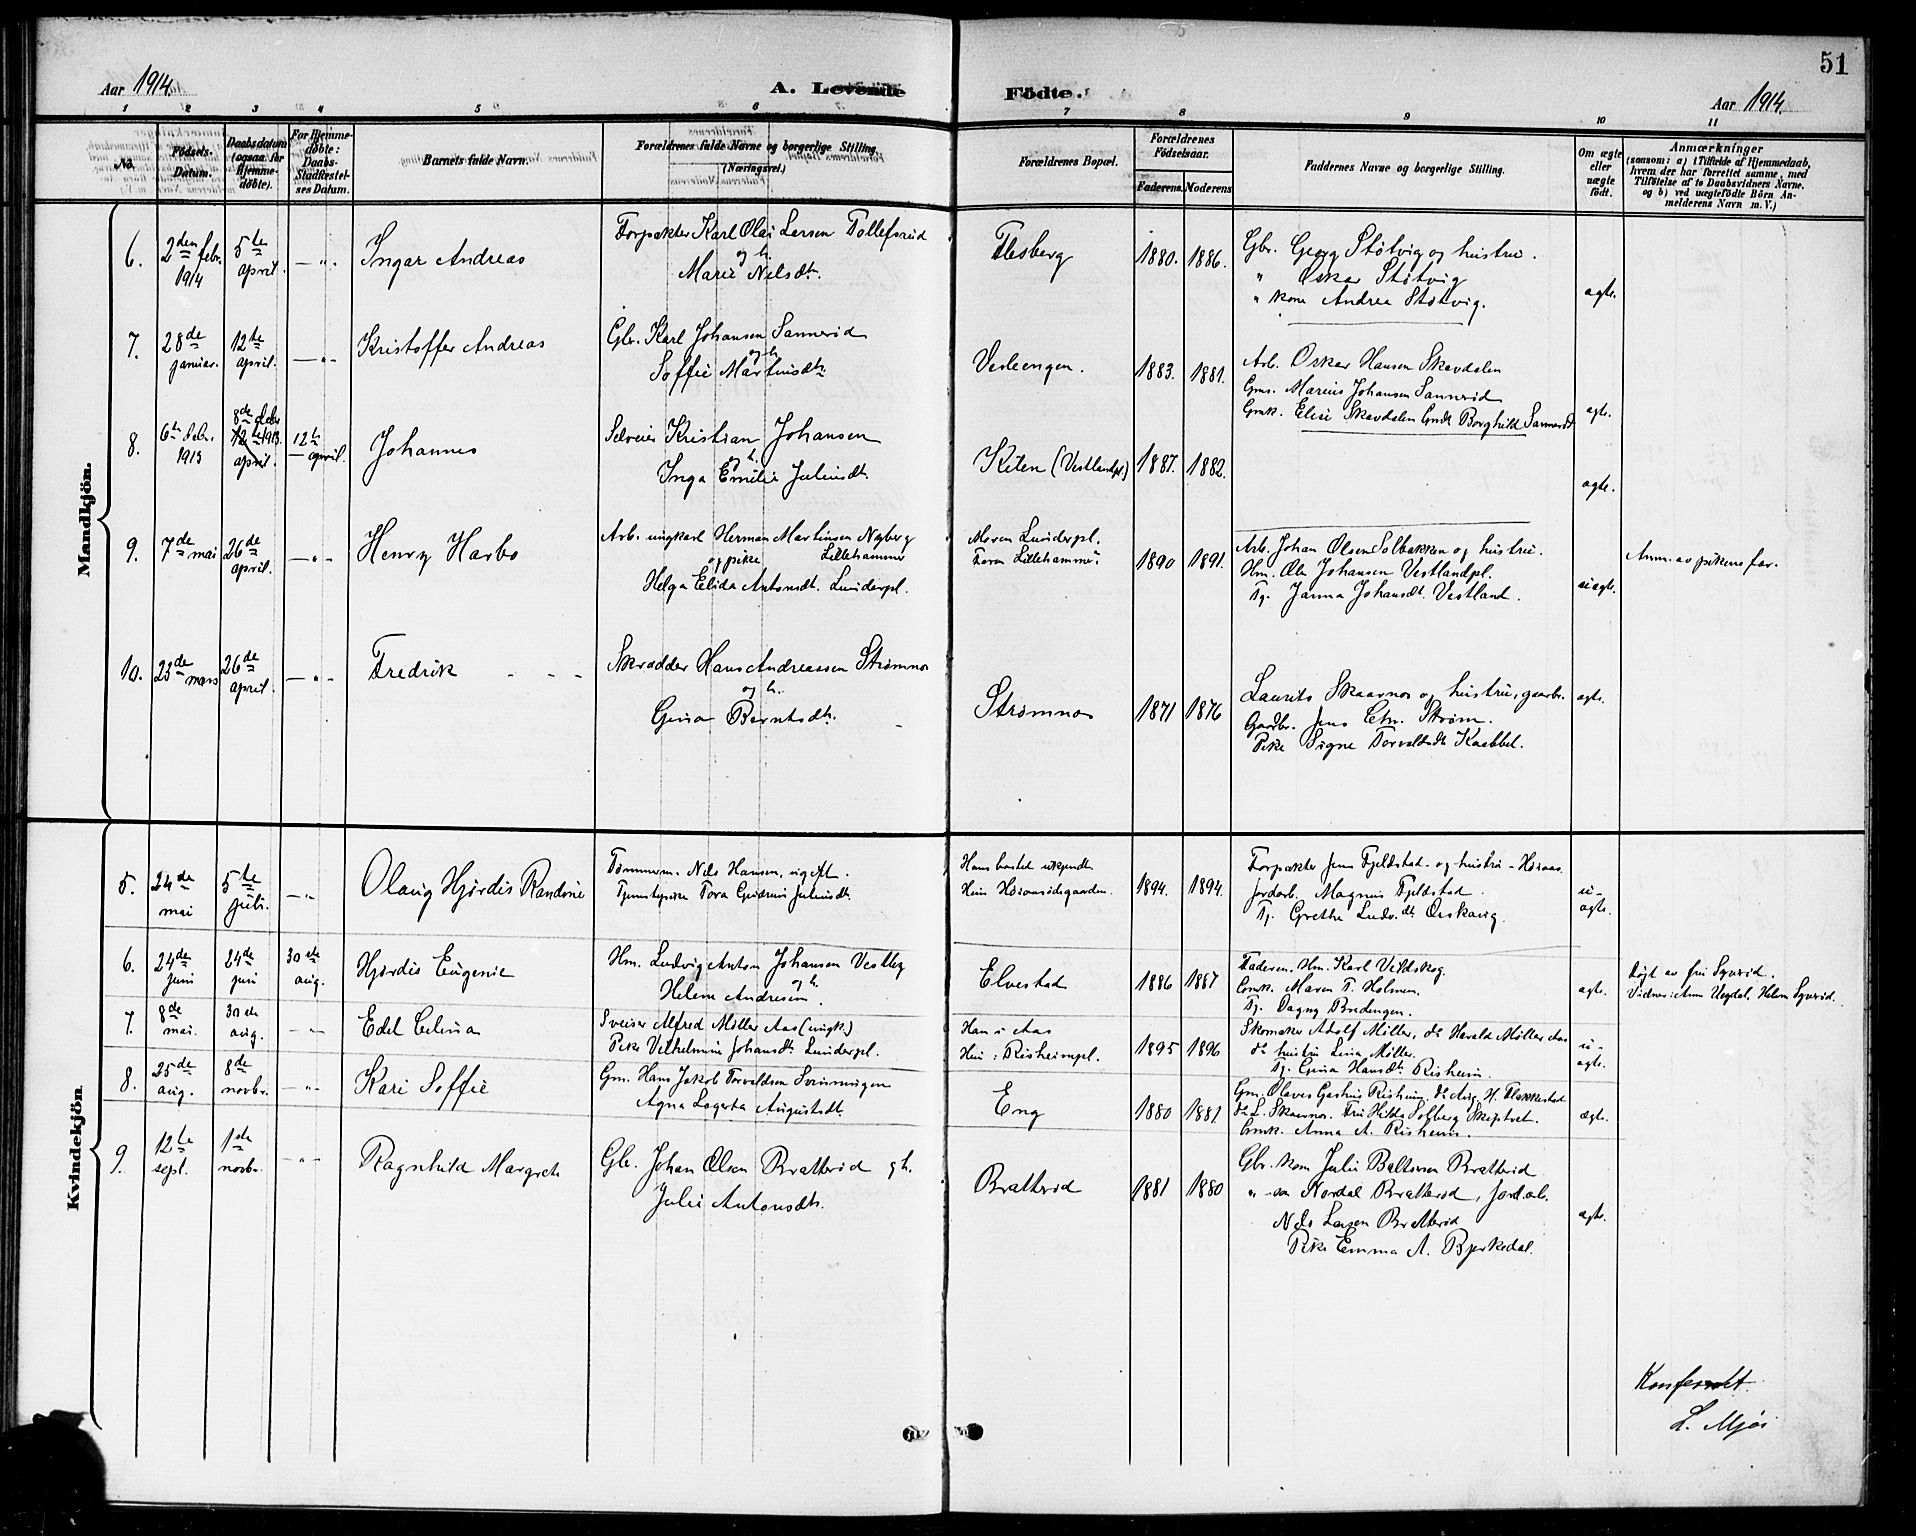 51
Aar 1914.
A. Levende Födte.
Aar 1914.
1 2 3 4 5 6 7 8 9 10 11
No.
Födsels-Datum.
Daabsdatum (ogsaa for Hjemme-döbte).
For Hjemme-döbte: Daabs-Stadfæstel-ses Datum.
Barnets fulde Navn.
Forældrenes fulde Navne og borgerlige Stilling. (Næringsvei.)
Forældrenes Bopæl.
Forældrenes Födselsaar.
Faderens. Moderens
Faddernes Navne og borgerlige Stilling.
Om ægte eller uægte födt.
Anmærkninger
(saasom: a) i Tilfælde af Hjemmedaab, hvem der har forrettet samme, med Tilföielse af to Daabsvidners Navne. og b) ved uægtefödte Börn Anmelderens Navn m. V.)
Mandkjön.
6. 2den febr. 1914 5te april. —"— Ingar Andreas
Forpakter Karl Olai Larsen Tollefsrud
og h.
Marie Nelsdt.
Flesberg 1880. 1886.
Gbr. Georg Støtvig og hustru.
" Oskar Støtvig
" kone Andrea Støtvig.
ægte.
7. 28de januar. 12te april. —"— Kristoffer Andreas
Gbr. Karl Johansen Sannerød
og h.
Soffie Martinsdt.
Vesleengen. 1883. 1881.
Arb. Oskar Hansen Skavdalen
Gms. Marius Johansen Sannerød
Gmk. Elise Skavdalen Gmdt Borghild Sannerød
ægte.
8. 6te febr. 1913 8de febr. 1913. 12te april. 12te april. Johannes
Selveier Kristian Johansen
og h.
Inga Emilie Juliusdt.
Kilen (Vestlandpl.) 1887. 1882.
ægte.
9. 7de mai 26de april. —"— Henry Harbo
Arb. ungkarl Herman Martinsen Nyberg
og pike Lillehammer
Helga Elida Antonsdt. Lunderpl.
Moren Lunderpl.
Faren Lillehammer
1890 1891.
Arb. Johan Olsen Solbakken og hustru.
Hm. Ole Johansen Vestlandpl.
Pg. Janna Johansdt. Vestland.
uægte.
Anm. av pikens far.
10. 23de mars 26de april. —"— Fredrik
Skrædder Hans Andreassen Strømnes
og h.
Gina Berntsdt.
Strømnes 1871 1876
Laurits Skaarnes og hustru, gaarbr.
Gaardbr. Jens Chr. Strøm.
Pike Signe Torvaldsdt Kaabbel.
ægte.
Kvindekjön.
5. 24de mai 5te juli. —"— Olaug Hjørdis Randine
Tømmerm. Nils Hansen, ugift.
Tjenestepike Tora Gudrun Juliusdt.
Hans bosted ukjendt
Hun
1894. 1894.
Forpakter Jens Fjeldstad og hustru
Jordarb. Magnus Fjeldstad.
Pg. Grethe Ludv.dt.
u-ægte.
6. 24de juni 24de juni 30te aug. Hjørdis Eugenie
Hm. Ludvig Anton Johansen Vestby
og h.
Helene Andresen.
Elvestad 1886 1887
Faderen, Hm. Karl Veldskog.
Gmk. Maren T. Holmen.
Pg. Dagny Bredengen.
ægte.
Døpt av fru Syverid.
Vidner: Anna Uegdal, Helen Syverid.
7. 8de mai. 30te aug. —"— Edel Celina
Sveiser Alfred Møller Aas (ungk.)
Pike Vilhelmine Johansdt. Lunderpl.
Han i Aas
Hun i Risheimpl.
1895 1896
Skomaker Adolf Møller, do Harald Møller Aas
do hustru Lina Møller.
Pg. Gina Hansdt. Risheim.
u-ægte.
8. 25de aug. 8de novbr. —"— Kari Soffie
Gm. Hans Jakob Torvaldsen
Agna Lagerta Augustsdt.
Eng 1880 1881.
Gm. Olaves Gashus Risheim, do Aug. H. Flakkestad
do L. Skaarnes. Fru Hilda Solberg Skiptvet.
Gmk. Anna A. Risheim.
ægte.
9. 12te sept. 1ste novbr. —"— Ragnhild Margrete
Gbr. Johan Olsen Bratterød gh.
Julie Antonsdt.
Bratterød 1881 1880
Gbr. kone Julie Baltersen Bratterød
" søn Nordal Bratterød, Jordarb.
Nils Larsen Bratterød
Pike Emma A. Bjerkedal.
ægte.
Konferert.
L. Mjøs